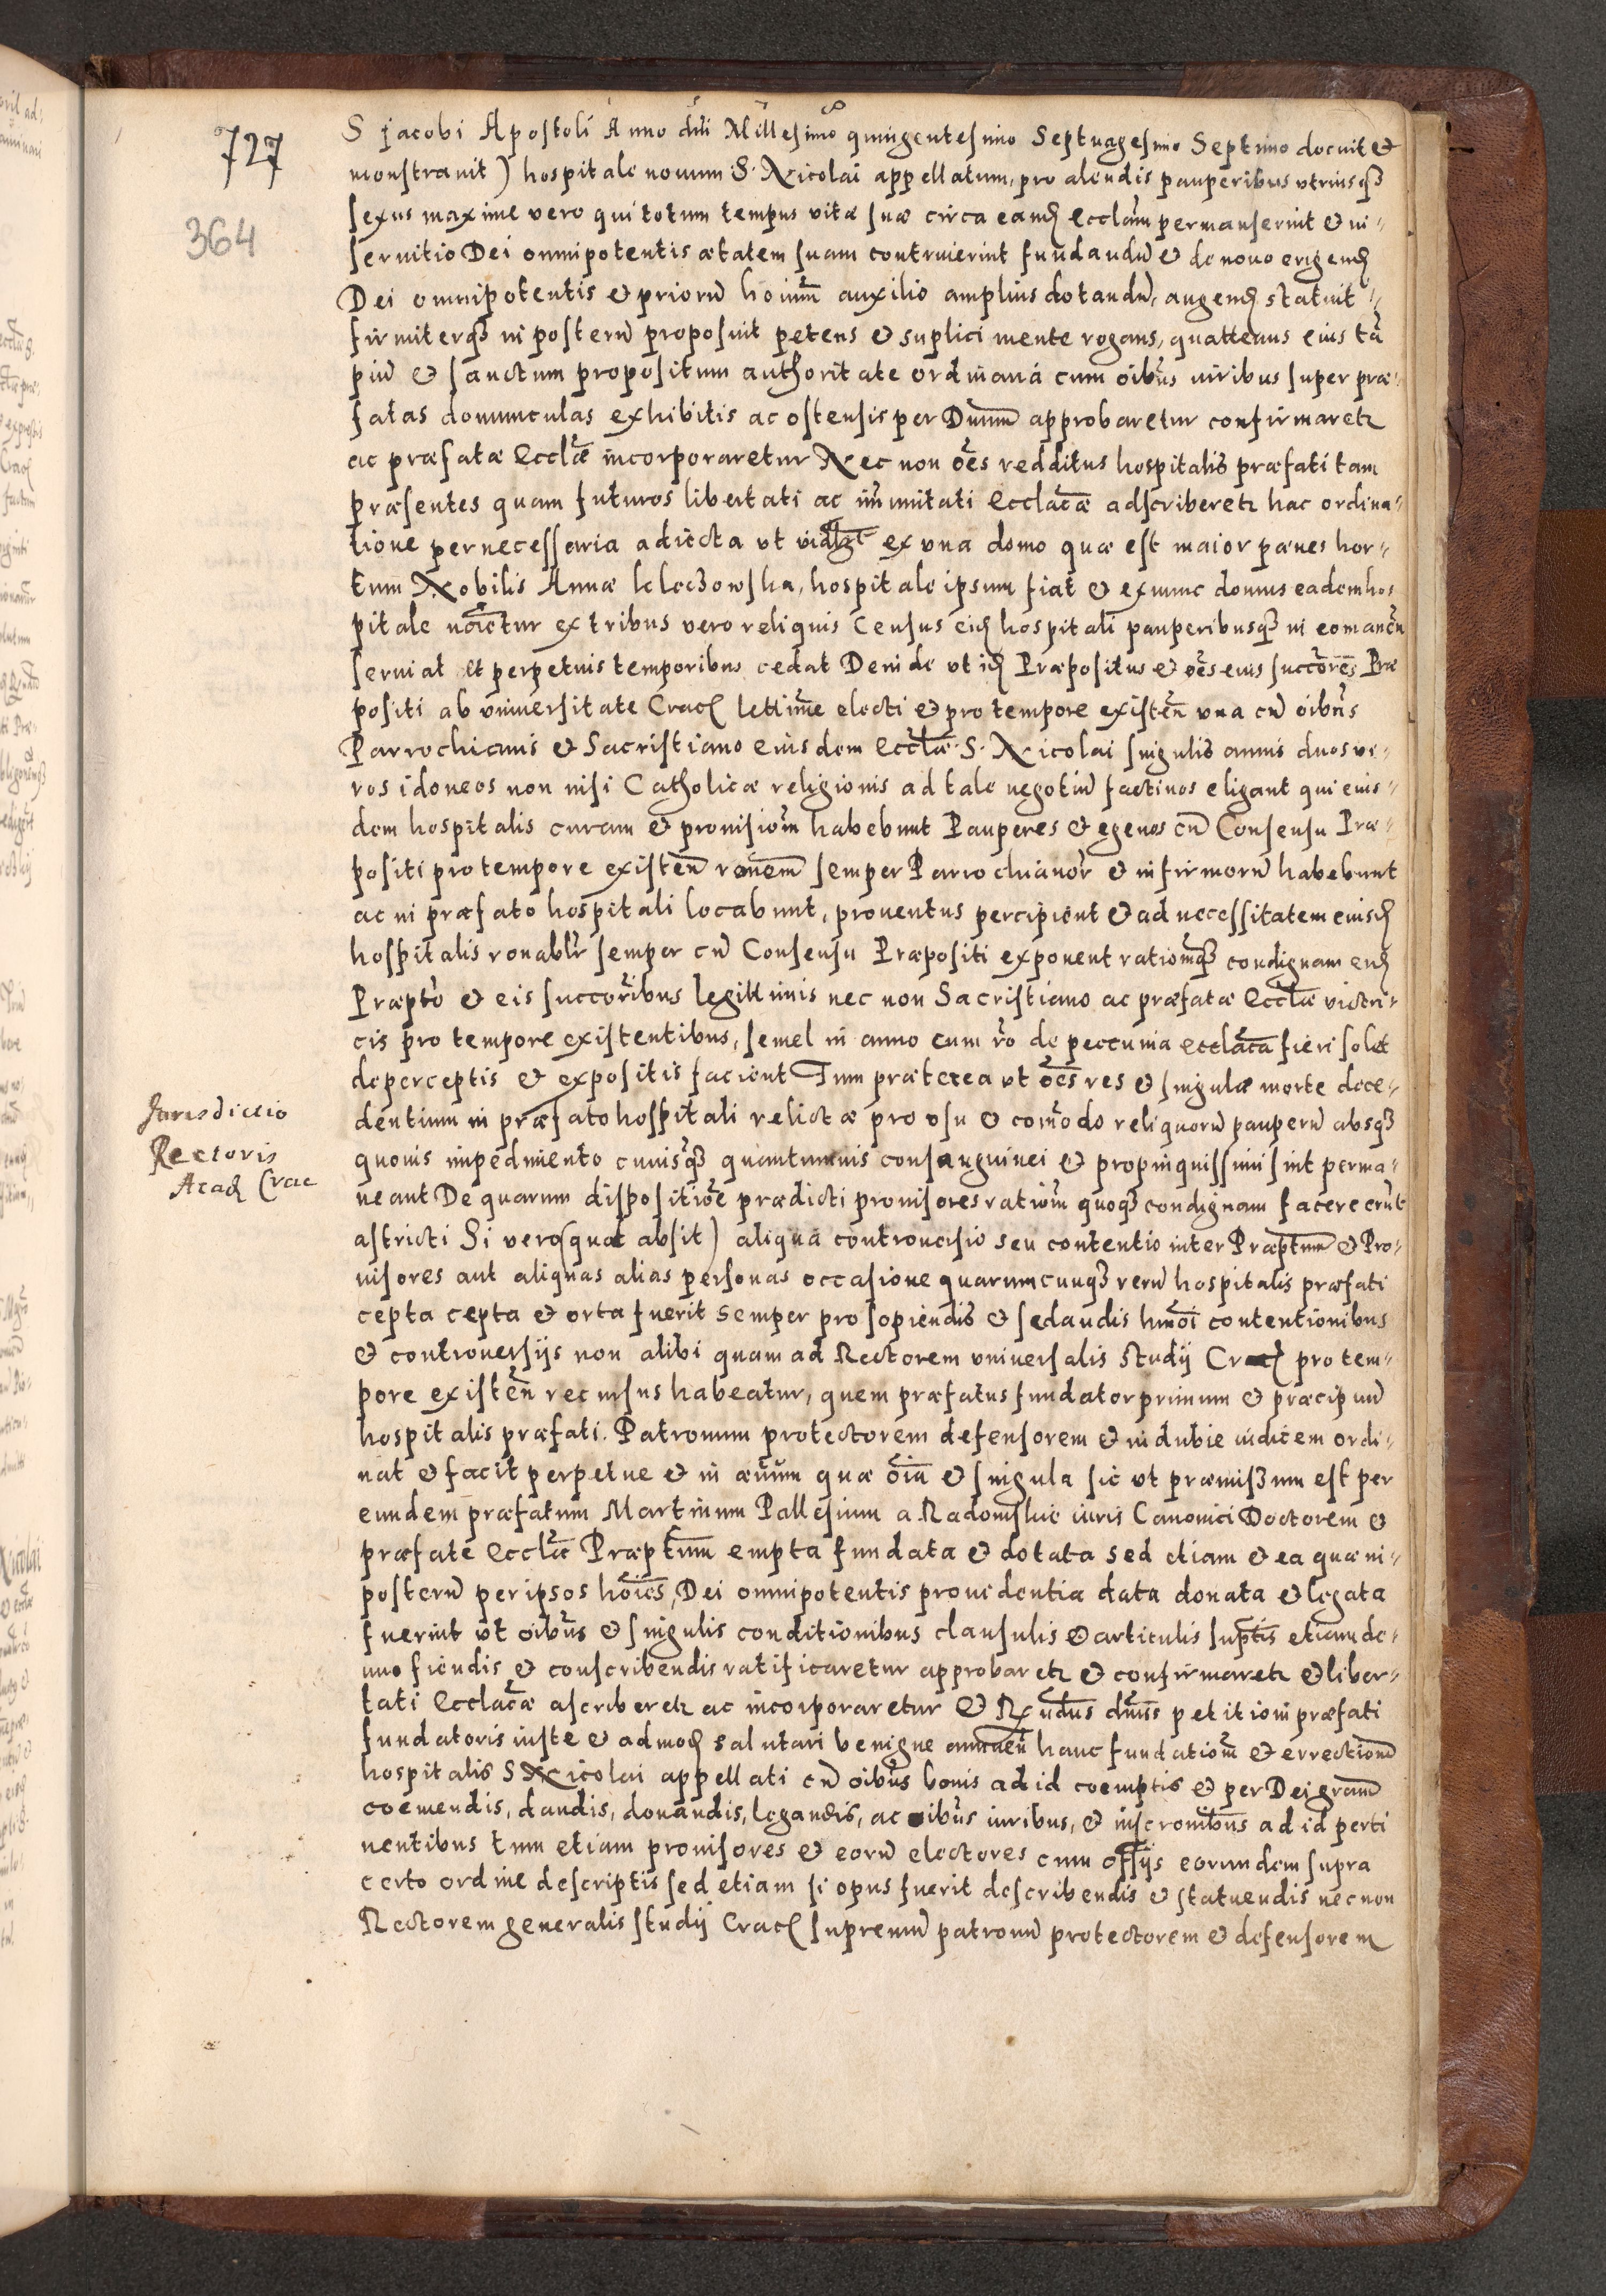 727
364
S Jacobi Apostoli Anno dni Millesimo quingentesimo Septuagesimo Septimo docuit et
monstrauit) hospitale nouum S. Nicolai appellatum, pro alendis pauperibus vtriusqʒ
sexus maxime vero qui totum tempus vitæ suæ circa eand Ecclam permanserint et in-
seruitio Dei omnipotentis ætatem suam contriuerint fundandu et de nouo erigend
Dei omnipotentis et priorũ hoinum auxilio amplius dotandũ, augend statuit
firmiterqʒ in posterũ proposuit petens et suplici mente rogans, quattenus eius tã
piũ et sanctum propositum authoritate ordinaria cum oibus iuribus super præ-
fatas domunculas exhibitis ac ostensis per Dnum approbaretur confirmaretr
ac præfatæ Ecclæ incorporaretur Nec non oẽs redditus hospitalis præfati tam
præsentes quam futuros libertati ac imunitati Ecclacæ adscriberetr hac ordina-
tione pernecessaria adiecta vt ex vna domo quæ est maior pænes hor-
tum Nobilis Annæ leleczowska, hospitale ipsum fiat et exnunc domus eadem hos
pitale noĩetur ex tribus vero reliquis Census eid hospitali pauperibusqʒ in eo manen
seruiat et perpetuis temporibus cedat Deinde vt id Præpositus et oẽs eius succores Præ
positi ab vniuersitate Crac lettime electi et pro tempore existen vna cũ oibus
Parrochianis et Sacristiano eiusdem Ecclæ S. Nicolai singulis annis duos vi-
ros idoneos non nisi Catholicæ religionis ad tale negotiũ factiuos eligant qui eius-
dem hospitalis curam et prouisiom habebunt Pauperes et egenos cũ Consensu Præ-
positi pro tempore existen ronem semper Parrochianor et infirmorũ habebunt
ac in præfato hospitali locabunt, prouentus percipient et ad necessitatem eiusd
hospitalis ronablr semper cũ Consensu Præpositi exponent rationqʒ condignam eid
Præpto et eis succoribus legittimis nec non Sacristiano ac præfatæ Ecclæ victri-
cis pro tempore existentibus, semel in anno cum ro de peccunia ecclaca fieri solet
de perceptis et expositis facient Tum præterea vt oẽs res et singulæ morte dece-
dentium in præfato hospitali relictæ pro vsu et comodo reliquorũ pauperũ absqʒ
quouis impedimento cuiusqʒ quantumuis consanguinei et propinquissimi sint perma-
neant De quarum dispositioe prædicti prouisores ratiom quoqʒ condignam facere erut
astricti Si vero (quot absit) aliqua controuersio seu contentio inter Præptum et Pro-
uisores aut aliquas alias personas occasione quarumcunqʒ rerũ hospitalis præfati
cepta cepta et orta fuerit semper pro sopiendis et sedandis hmoi contentionibus
et controuersijs non alibi quam ad Rectorem vniuersalis studij Crac pro tem-
pore existen recursus habeatur, quem præfatus fundator primum et præcipuũ
hospitalis præfati. Patronum protectorem defensorem et indubie iudicem ordi-
nat et facit perpetue et in æuum quæ oia et singula sic vt præmissum est per
eundem præfatum Martinum Pallesium a Radomskie iuris Canonici Doctorem et
præfate Ecclæ Præptum empta fundata et dotata sed etiam et ea quæ in-
posterũ per ipsos hoies, Dei omnipotentis prouidentia data donata et legata
fuerint vt oibus et singulis conditionibus clausulis et articulis suptis etiam de-
nuo fiendis et conscribendis ratificaretur approbaretr et confirmaretr et liber-
tati Ecclacæ ascriberetr ac incorporaretur et Rxudus dmss petitioni præfati
fundatoris iuste et admod salutari benigne annuen hanc fundatiom et errectionẽ
hospitalis S Nicolai appellati cũ oibus bonis ad id coemptis et per Dei gram
coemendis, dandis, donandis, legandis, ac oibus iuribus, et ad id perti
nentibus tum etiam prouisores et eorũ electores cum offijs eorundem supra
certo ordine descriptis sed etiam si opus fuerit describendis et statuendis necnon
Rectorem generalis studij Crac supremũ patronũ protectorem et defensorem
Jurisdictio
Rectoris
Acad Crac